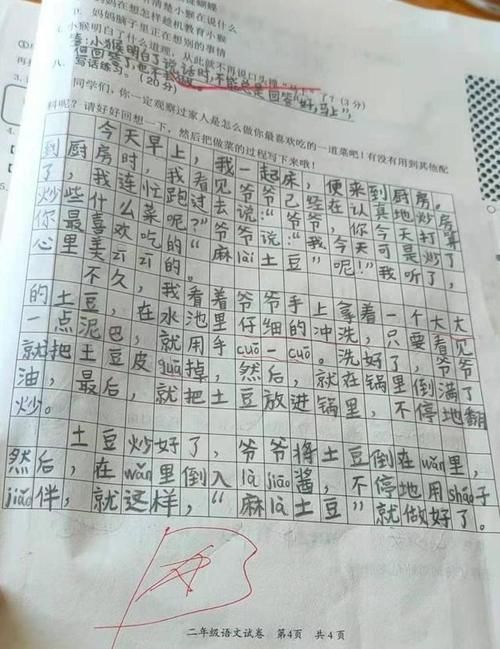 妈妈在想怎样趁机教育小猴
D. 妈妈脑子里正在想别的事情
4. 小猴明白了什么道理，从此就不再说口头禅
答：小猴明白了说话时，不能总是回答"好，马上"，
八、写话练习。（20分）
同学们，你一定观察过家人是怎么做你最喜欢吃的一道菜吧！有没有用到其他配
料呢？请好好回想一下，然后把做菜的过程写下来哦！
今天早上，我一起床，便来到厨房。
到厨房时，我看见爷爷已经在认真地炒菜
了，我连忙跑过去说："爷爷，你今天打算
炒些什么菜呢？"爷爷说："我今天可是炒了
你最喜欢吃的"麻lài土豆"呢！"我听了，
心里美zī zī的。
不久，我看着爷爷手上拿着一个大大
的土豆，在水池里仔细的冲洗，只要看见
一点泥巴，就用手cuō一cuō。洗好了，爷爷
就把土豆皮guā掉，然后，就在锅里倒满了
油，最后，就把土豆放进锅里，不停地翻
炒。
土豆炒好了，爷爷将土豆倒在wǎn里，
然后，在wǎn里倒入là jiāo酱，不停地用sháo子
jiǎo伴，就这样，"麻là土豆"就做好了。
二年级语文试卷 第4页 共4页